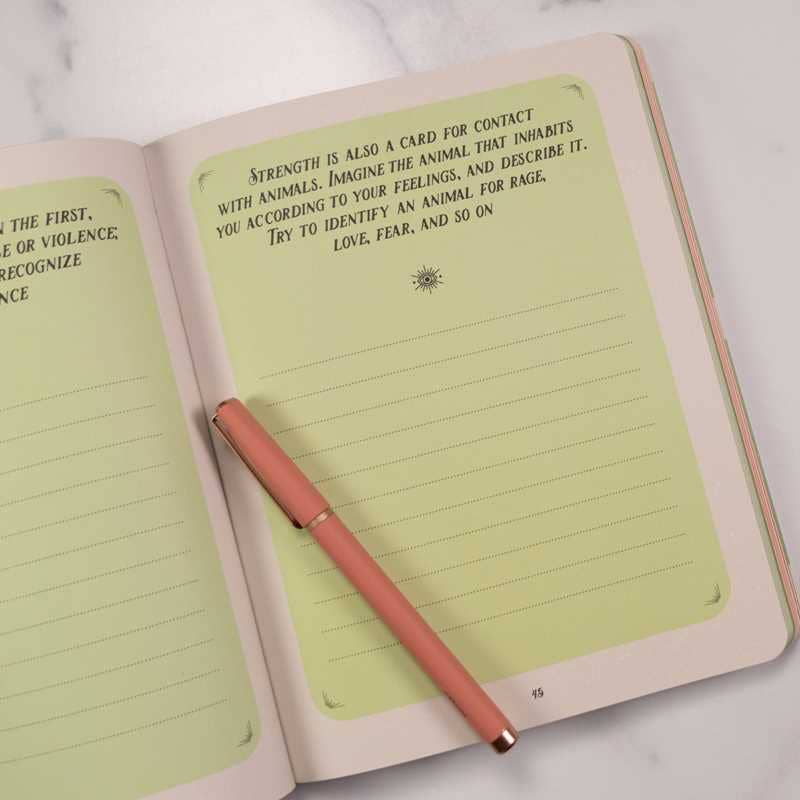 THE FIRST,
OR VIOLENCE;
RECOGNIZE
STRENGTH IS ALSO A CARD FOR CONTACT
WITH ANIMALS. IMAGINE THE ANIMAL THAT INHABITS
YOU ACCORDING TO YOUR FEELINGS, AND DESCRIBE IT.
TRY TO IDENTIFY AN ANIMAL FOR RAGE,
LOVE, FEAR, AND SO ON